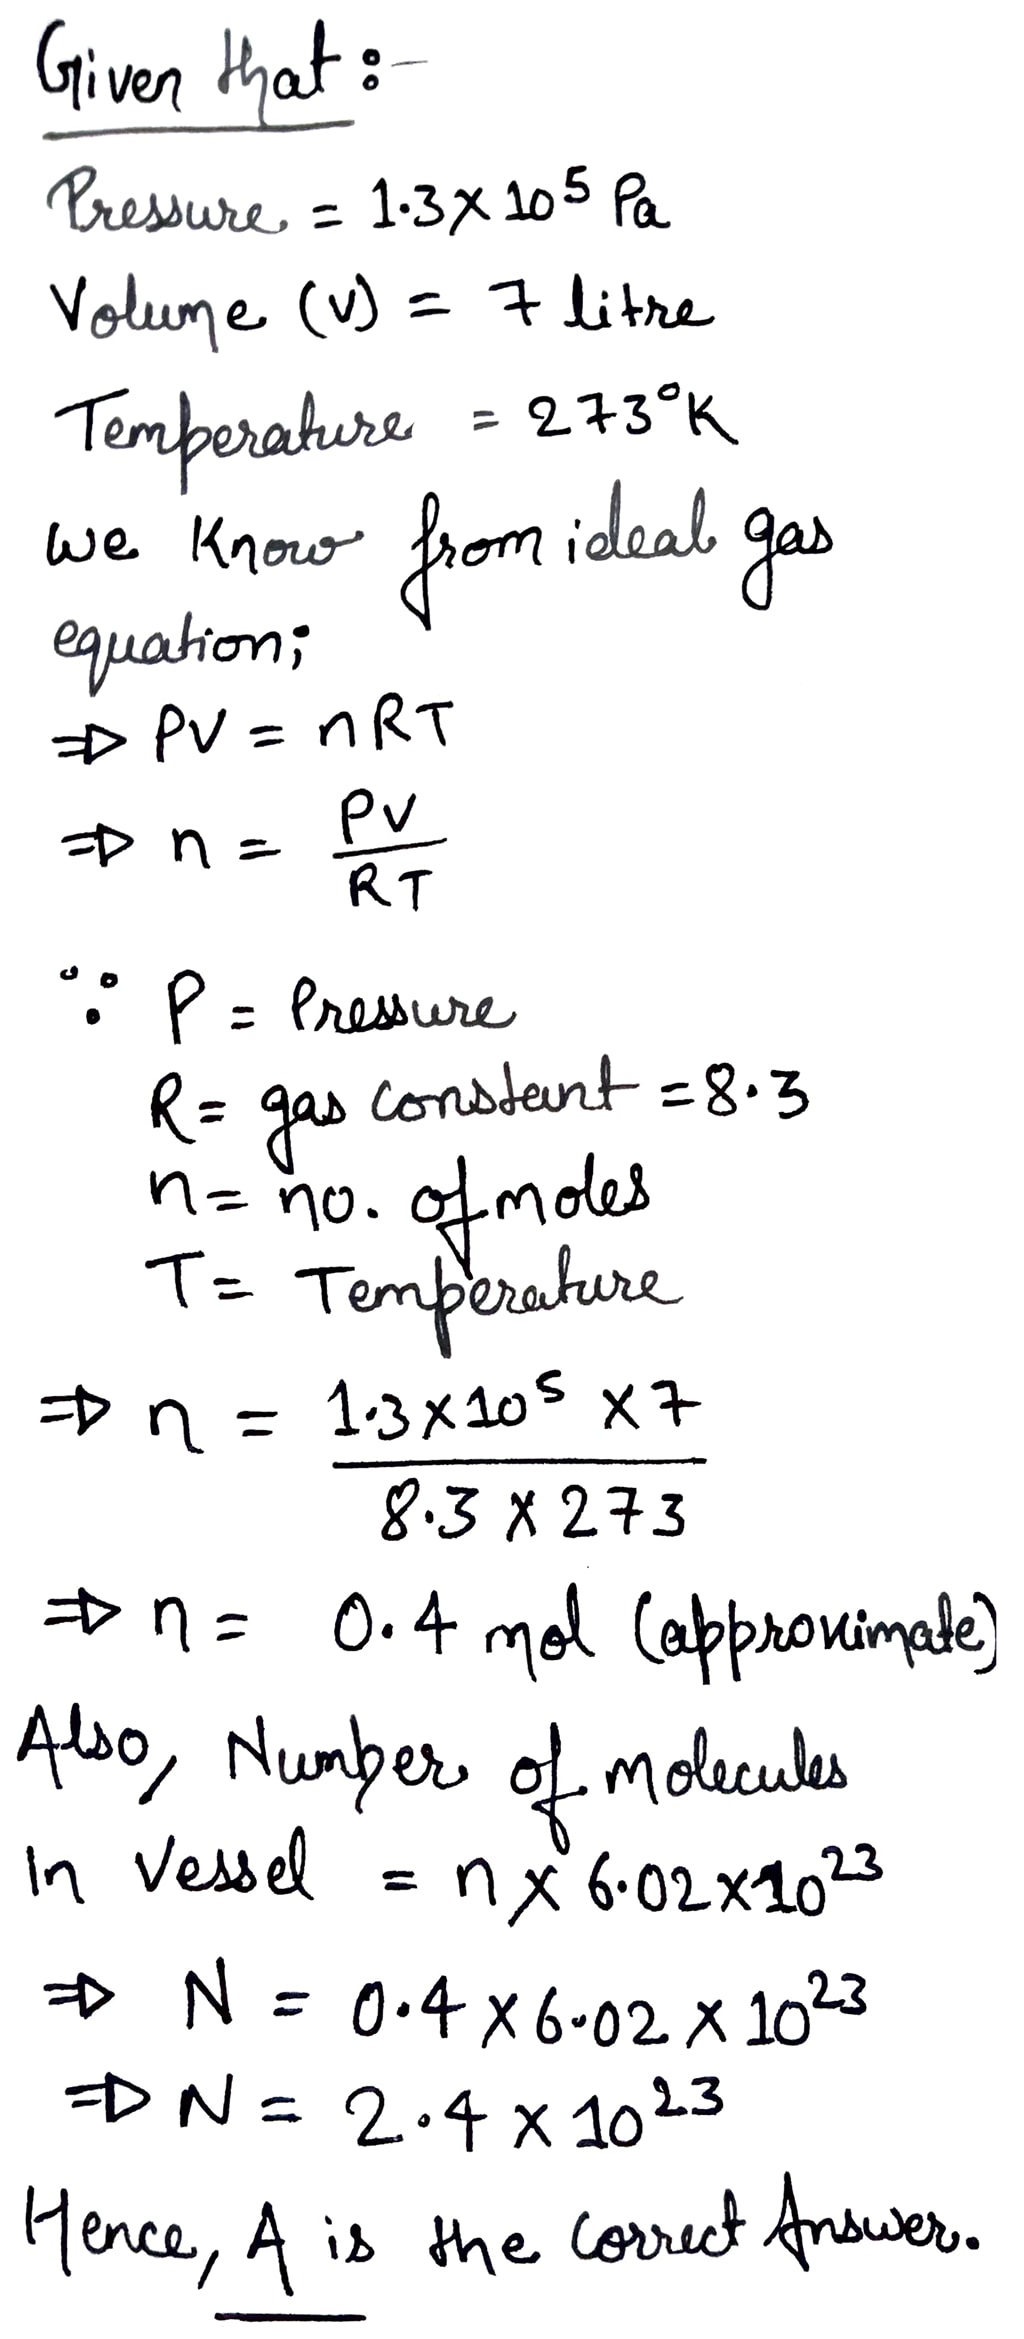 Given that :-
Pressure = 1.3 × 10⁵ Pa
Volume (V) = 7 litre
Temperature = 273°K
we know from ideal gas
equation;
⇒ PV = nRT
⇒ n = PV
RT
∵ P = Pressure
R = gas constant = 8.3
n = no. of moles
T = Temperature
⇒ n = 1.3 × 10⁵ × 7
8.3 × 273
⇒ n = 0.4 mol (approximate)
Also, Number of molecules
In vessel = n × 6.02 × 10²³
⇒ N = 0.4 × 6.02 × 10²³
⇒ N = 2.4 × 10²³
Hence, A is the correct Answer.